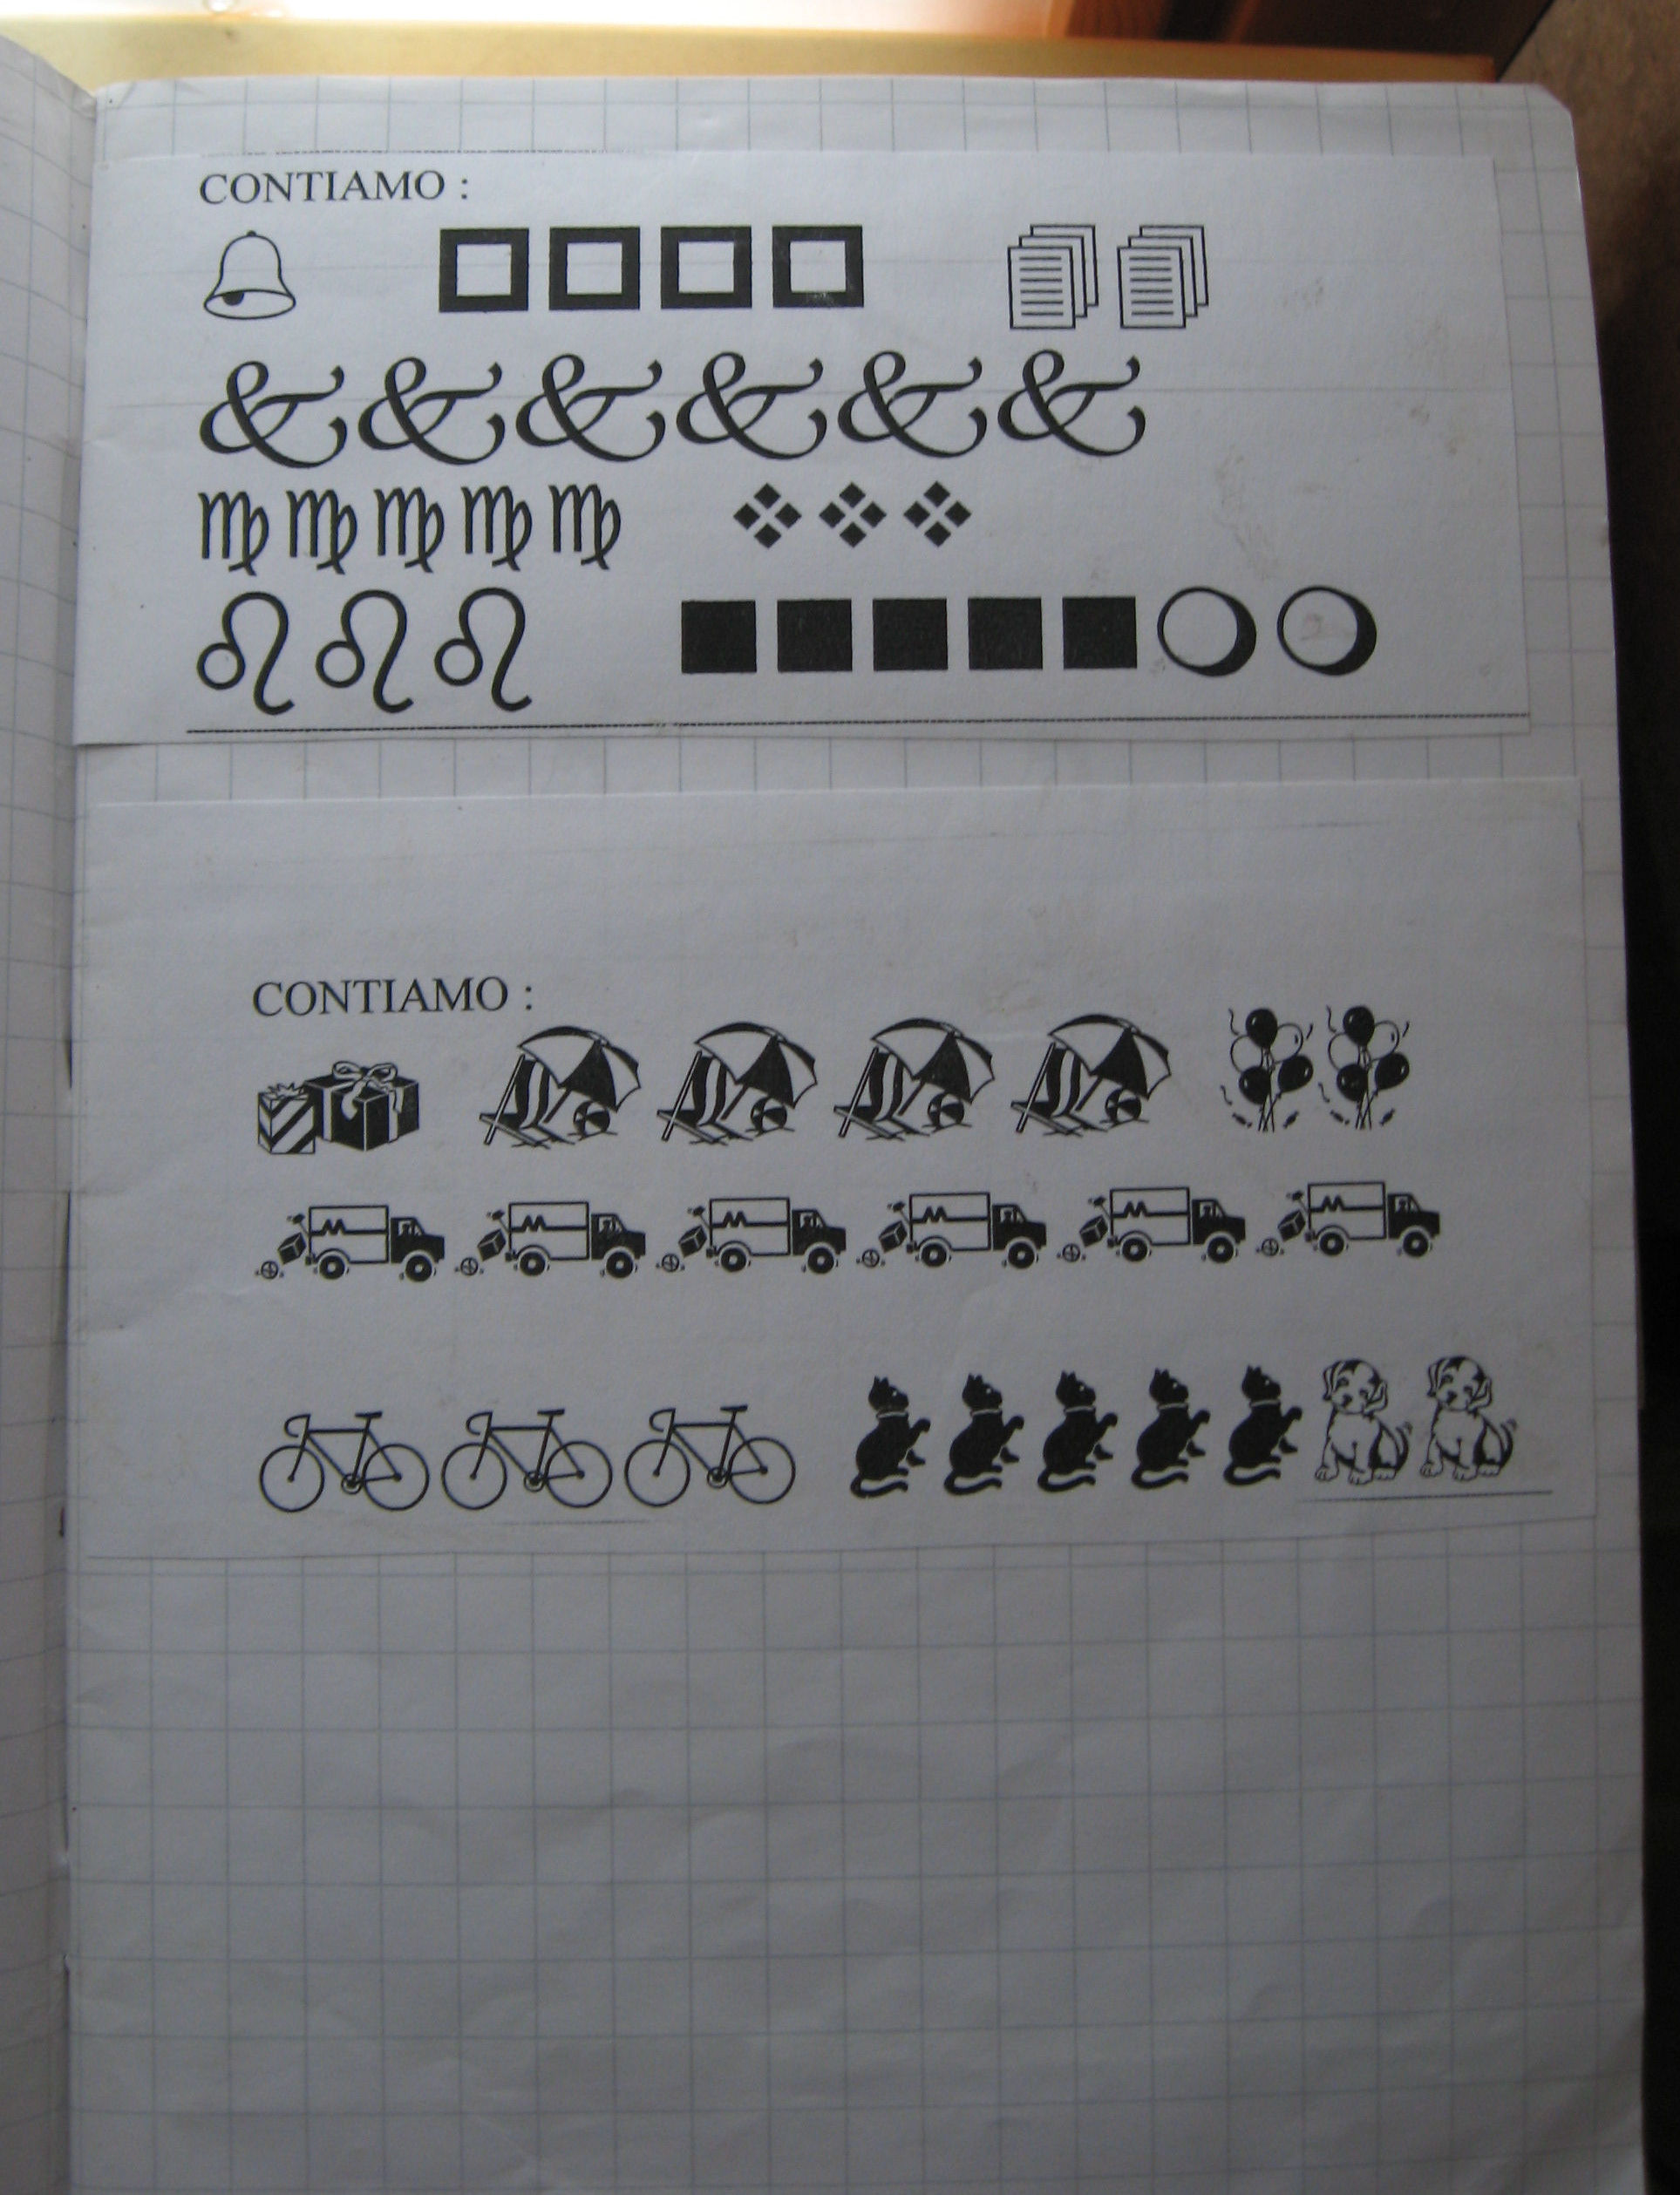 CONTIAMO :
&&&&&&
♍♍♍♍♍ ❖❖❖
♌♌♌
CONTIAMO :